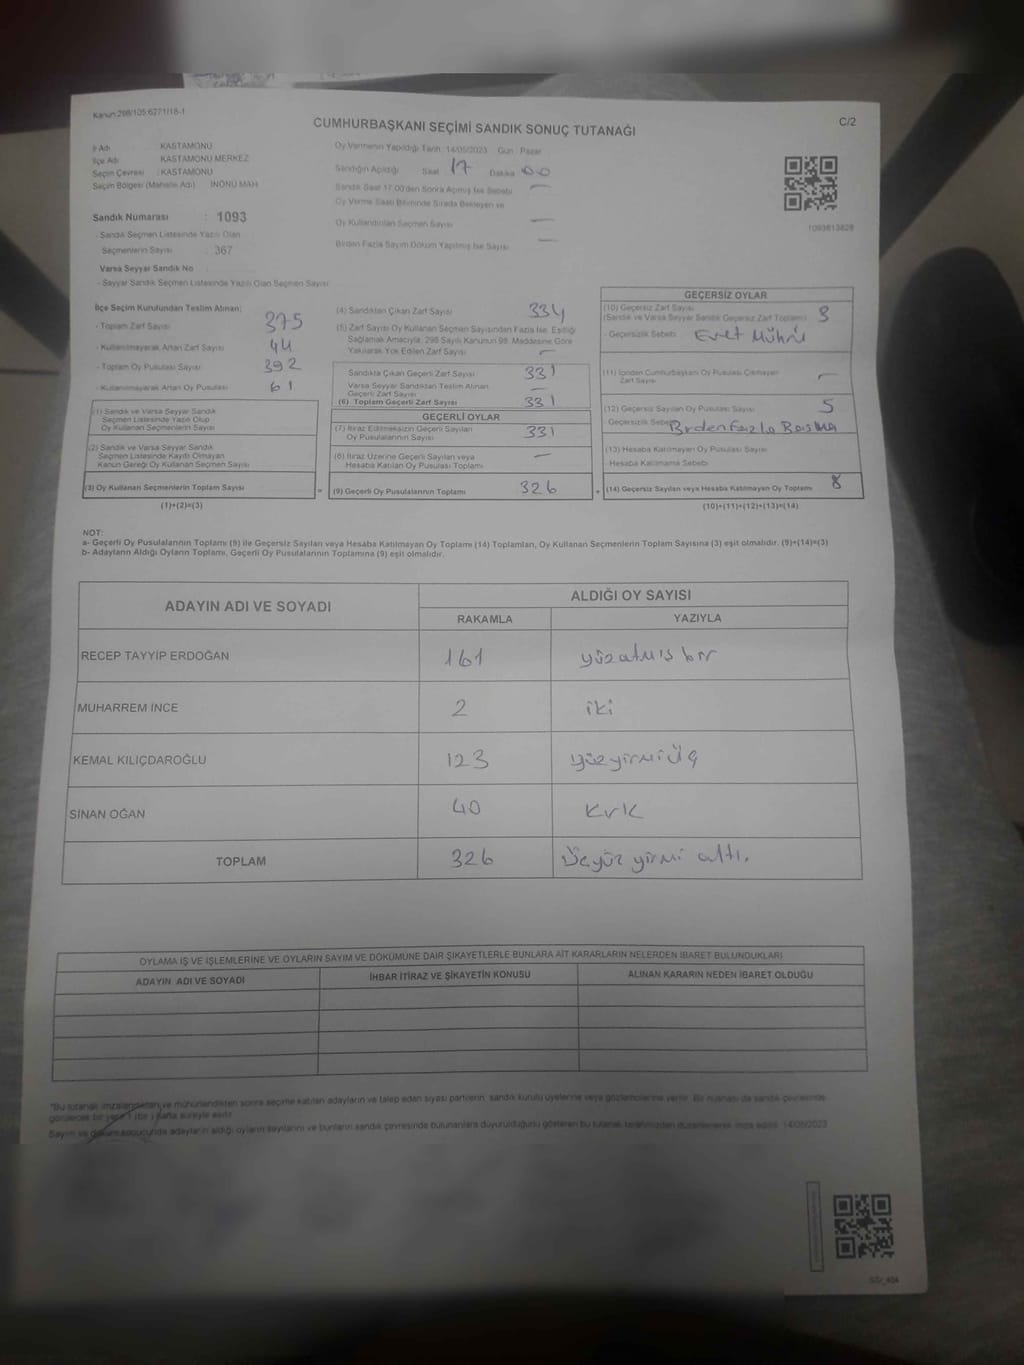 Kanun:298/105:6271/18-1
C/2
CUMHURBAŞKANI SEÇİMİ SANDIK SONUÇ TUTANAĞI
İl Adı KASTAMONU
İlçe Adı KASTAMONU MERKEZ
Seçim Çevresi : KASTAMONU
Seçim Bölgesi (Mahalle Adı) İNÖNÜ MAH
Sandık Numarası : 1093
- Sandık Seçmen Listesinde Yazılı Olan
Seçmenlerin Sayısı : 367
Varsa Seyyar Sandık No
- Seyyar Sandık Seçmen Listesinde Yazılı Olan Seçmen Sayısı
Oy Vermenin Yapıldığı Tarih: 14/05/2023 Gün : Pazar
Sandığın Açıldığı Saat 17 Dakika 00
Sandık Saat 17.00'den Sonra Açılmış İse Sebebi —
Oy Verme Saati Bitiminde Sırada Bekleyen ve
Oy Kullandırılan Seçmen Sayısı —
Birden Fazla Sayım Döküm Yapılmış İse Sayısı —
1093813828
İlçe Seçim Kurulundan Teslim Alınan;
- Toplam Zarf Sayısı 375
- Kullanılmayarak Artan Zarf Sayısı 44
- Toplam Oy Pusulası Sayısı 392
- Kullanılmayarak Artan Oy Pusulası 61
(1) Sandık ve Varsa Seyyar Sandık
Seçmen Listesinde Yazılı Olup
Oy Kullanan Seçmenlerin Sayısı
(2) Sandık ve Varsa Seyyar Sandık
Seçmen Listesinde Kayıtlı Olmayan
Kanun Gereği Oy Kullanan Seçmen Sayısı
(3) Oy Kullanan Seçmenlerin Toplam Sayısı =
(1)+(2)=(3)
(4) Sandıktan Çıkan Zarf Sayısı 334
(5) Zarf Sayısı Oy Kullanan Seçmen Sayısından Fazla İse, Eşitliği
Sağlamak Amacıyla, 298 Sayılı Kanunun 98. Maddesine Göre
Yakılarak Yok Edilen Zarf Sayısı —
Sandıkta Çıkan Geçerli Zarf Sayısı 331
Varsa Seyyar Sandıktan Teslim Alınan
Geçerli Zarf Sayısı —
(6) Toplam Geçerli Zarf Sayısı 331
GEÇERLİ OYLAR
(7) İtiraz Edilmeksizin Geçerli Sayılan
Oy Pusulalarının Sayısı 331
(8) İtiraz Üzerine Geçerli Sayılan veya
Hesaba Katılan Oy Pusulası Toplamı —
(9) Geçerli Oy Pusulalarının Toplamı 326 +
GEÇERSİZ OYLAR
(10) Geçersiz Zarf Sayısı
(Sandık ve Varsa Seyyar Sandık Geçersiz Zarf Toplamı) 3
- Geçersizlik Sebebi Evet Mührü
(11) İçinden Cumhurbaşkanı Oy Pusulası Çıkmayan
Zarf Sayısı —
(12) Geçersiz Sayılan Oy Pusulası Sayısı 5
Geçersizlik Sebebi Birden Fazla Basma
(13) Hesaba Katılmayan Oy Pusulası Sayısı
Hesaba Katılmama Sebebi
(14) Geçersiz Sayılan veya Hesaba Katılmayan Oy Toplamı 8
(10)+(11)+(12)+(13)=(14)
NOT:
a- Geçerli Oy Pusulalarının Toplamı (9) ile Geçersiz Sayılan veya Hesaba Katılmayan Oy Toplamı (14) Toplamları, Oy Kullanan Seçmenlerin Toplam Sayısına (3) eşit olmalıdır. (9)+(14)=(3)
b- Adayların Aldığı Oyların Toplamı, Geçerli Oy Pusulalarının Toplamına (9) eşit olmalıdır.
ADAYIN ADI VE SOYADI
ALDIĞI OY SAYISI
RAKAMLA YAZIYLA
RECEP TAYYİP ERDOĞAN 161 yüzatmış bir
MUHARREM İNCE 2 iki
KEMAL KILIÇDAROĞLU 123 yüzyirmi üç
SİNAN OĞAN 40 Kırk
TOPLAM 326 Üçyüz yirmi altı.
OYLAMA İŞ VE İŞLEMLERİNE VE OYLARIN SAYIM VE DÖKÜMÜNE DAİR ŞİKAYETLERLE BUNLARA AİT KARARLARIN NELERDEN İBARET BULUNDUKLARI
ADAYIN ADI VE SOYADI İHBAR İTİRAZ VE ŞİKAYETİN KONUSU ALINAN KARARIN NEDEN İBARET OLDUĞU
*Bu tutanak imzalandıktan ve mühürlendikten sonra seçime katılan adayların ve talep eden siyasi partilerin, sandık kurulu üyelerine veya gözlemcilerine verilir. Bir nüshası da sandık çevresinde
görülecek bir yere 1 (bir) hafta süreyle asılır.
Sayım ve döküm sonucunda adayların aldığı oyların sayılarını ve bunların sandık çevresinde bulunanlara duyurulduğunu gösteren bu tutanak tarafımızdan düzenlenerek imza edildi. 14/05/2023